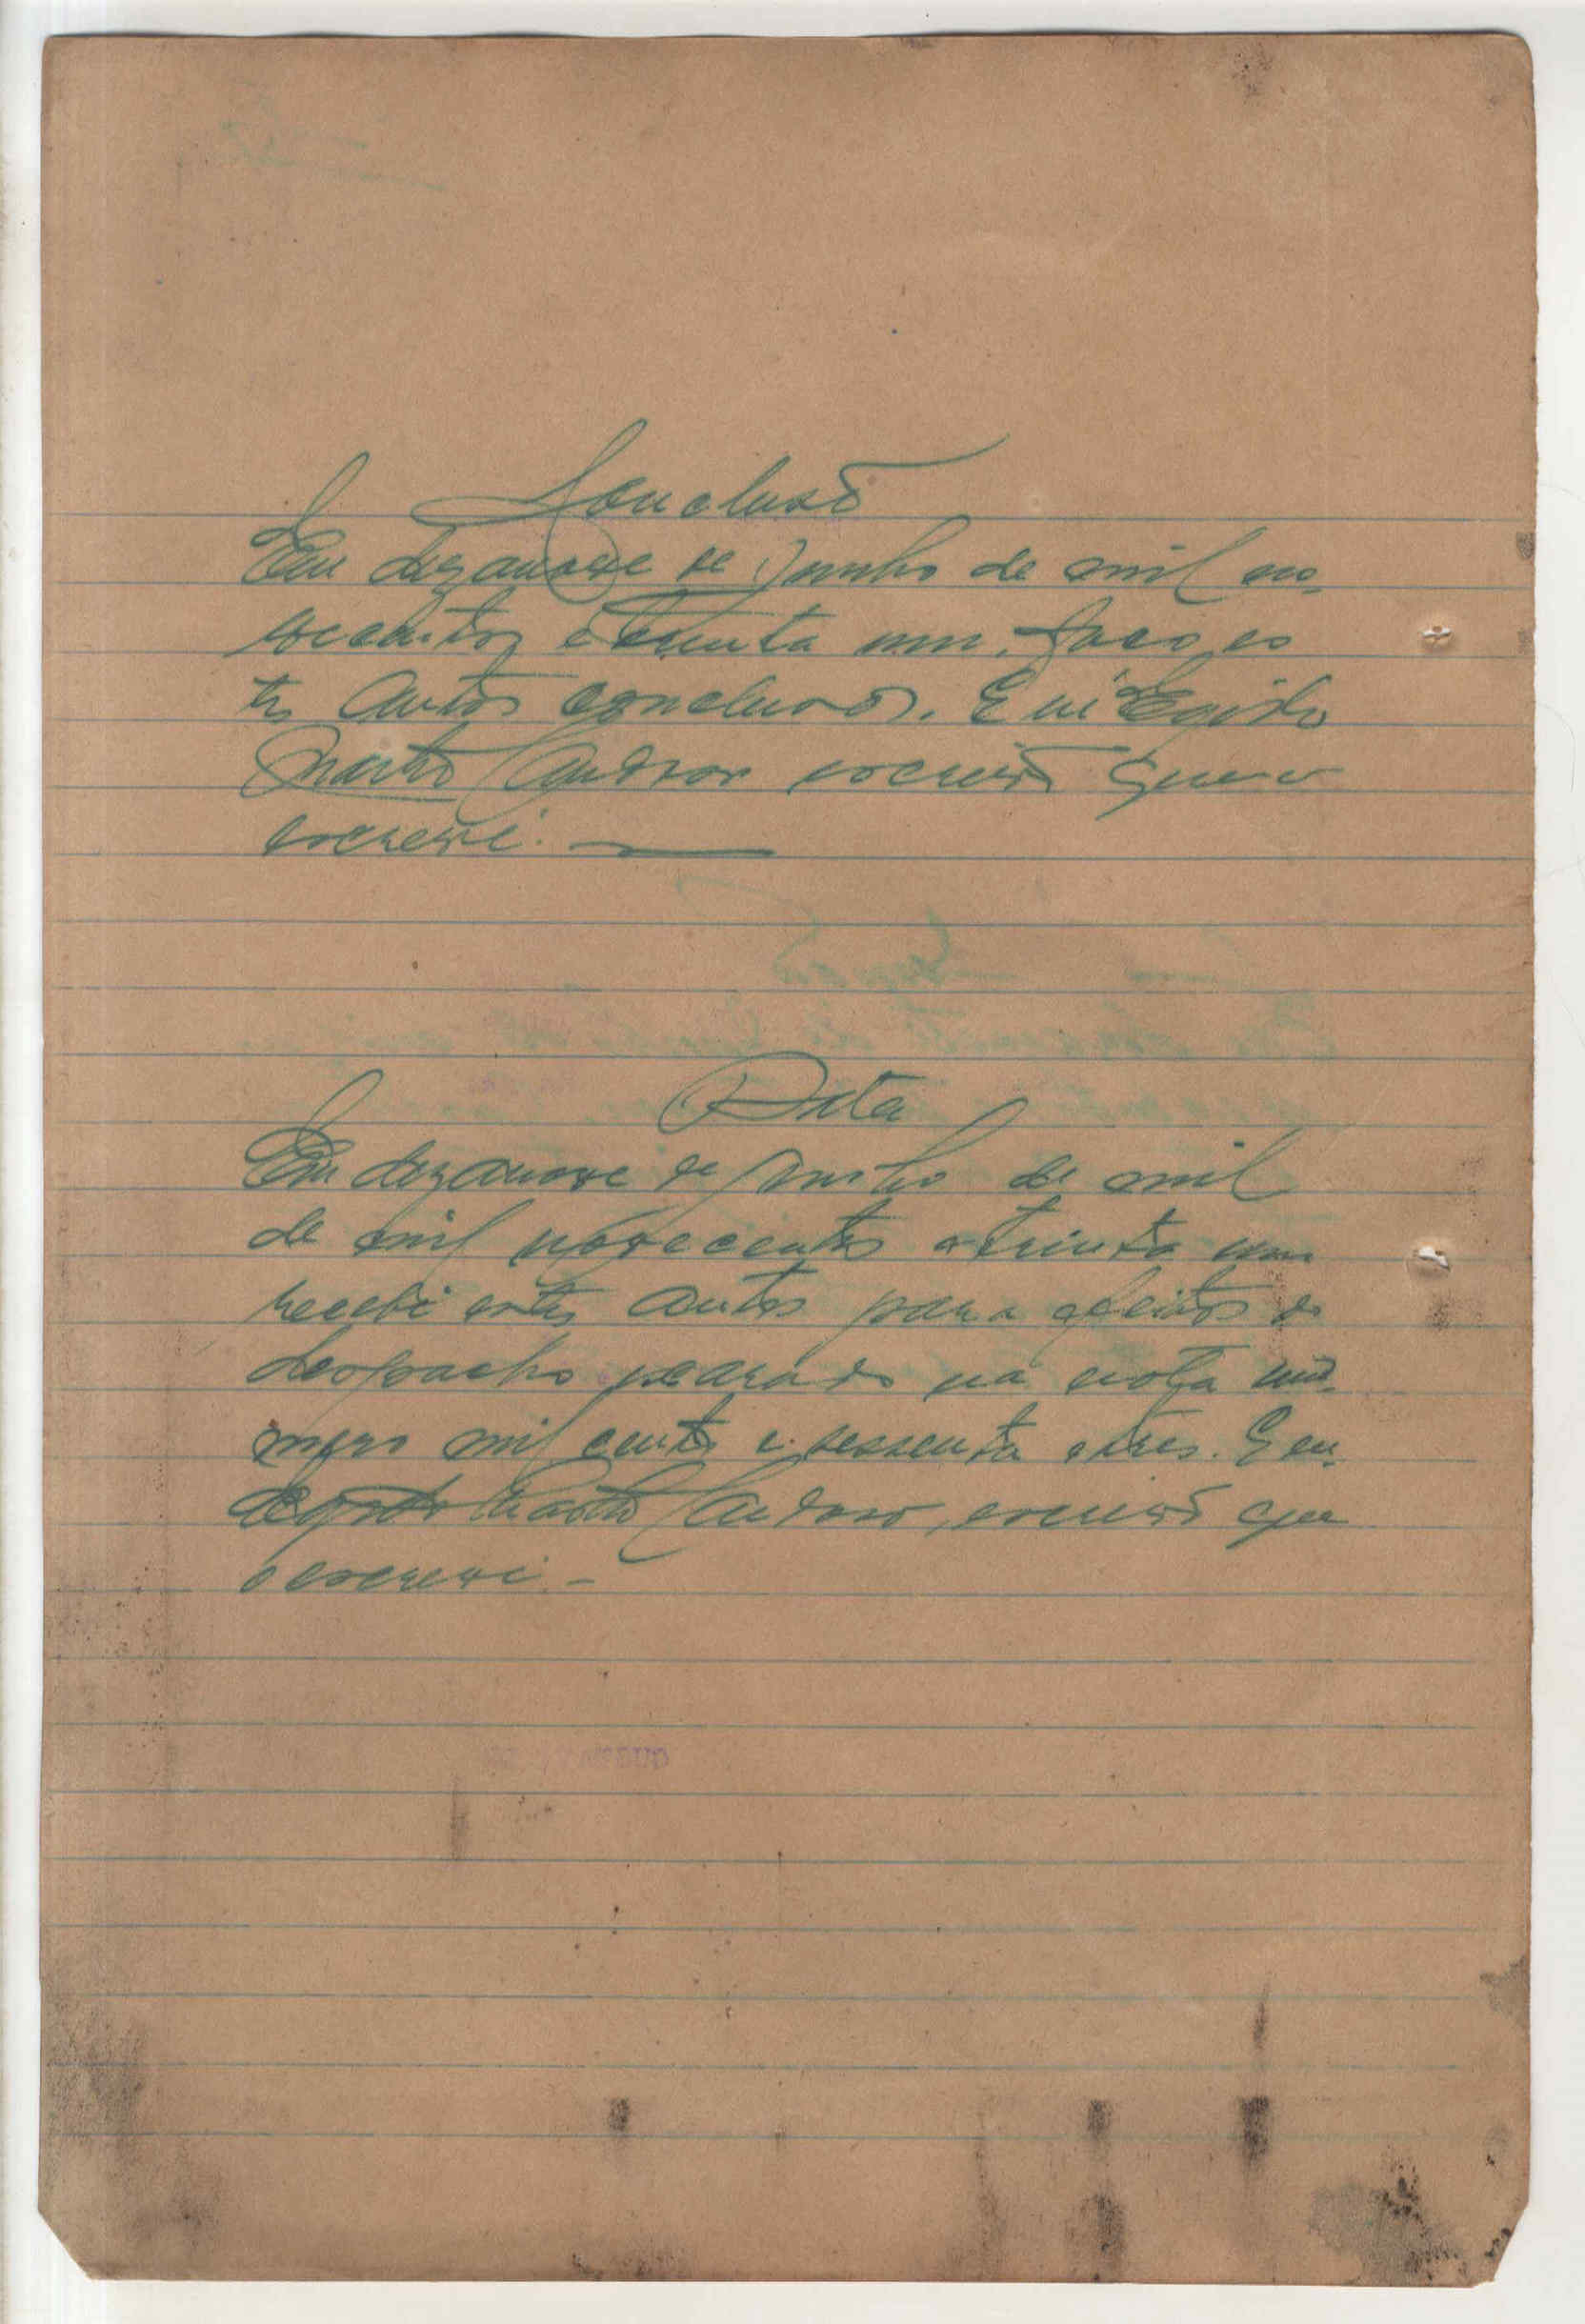 Conclusão
Em dezanove de Junho de mil no-
vecentos e trinta um. Faço es
tes autos conclusos. E eu Egidio
Martho Cardoso escrivão que o
escrevi.
Data
Em dezanove de Junho de mil
de mil novecentos e trinta um
recebi estes autos para efeitos do
despacho na nota nú-
mero mil cento e sessenta e tres. E eu
Egidio Martho Cardoso, escrivão que
o escrevi -